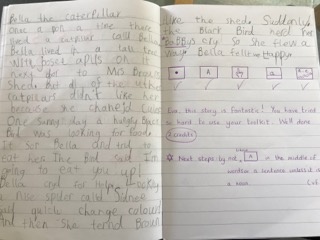 Bella the caterpillar
Once a pon a time there
lived a caterpiller call Bella
Bella lived in a tall tree
with roses apuls on it
next dor to Mrs Browns
Shed. But all of the uther
catpilers didn't like her
because she chaned colour
One sunny day a hungry Black
Bird was looking for food.
It sor Bella and tried to
eat her. The Bird said I'm
going to eat you up!
Bella cried for help. Luckily
a nise spider called Sidney
said quickly change colour
and then She ternd Brown
like the shed. Suddenly
the Black Bird herd her
City! So she flew a
way. Bella fellt happy.
A a
Eva, this story is fantastic! You have tried
so hard to use your toolkit. Well done.
2 credits
Next steps try not A in the middle of
words or a sentence unless it is
a noun.